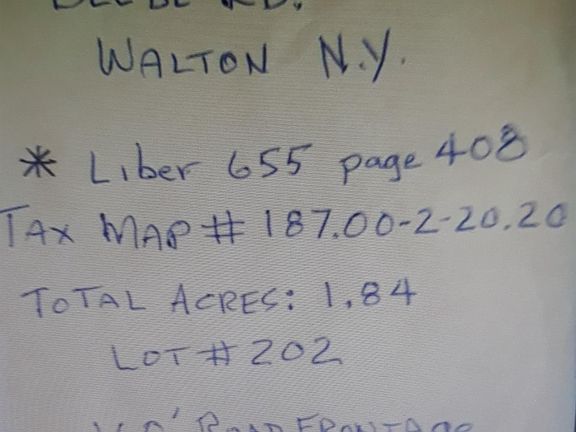 WALTON N.Y.
* Liber 655 page 408
TAX MAP # 187.00-2-20.20
TOTAL ACRES: 1.84
LOT # 202
ROAD FRONTAGE